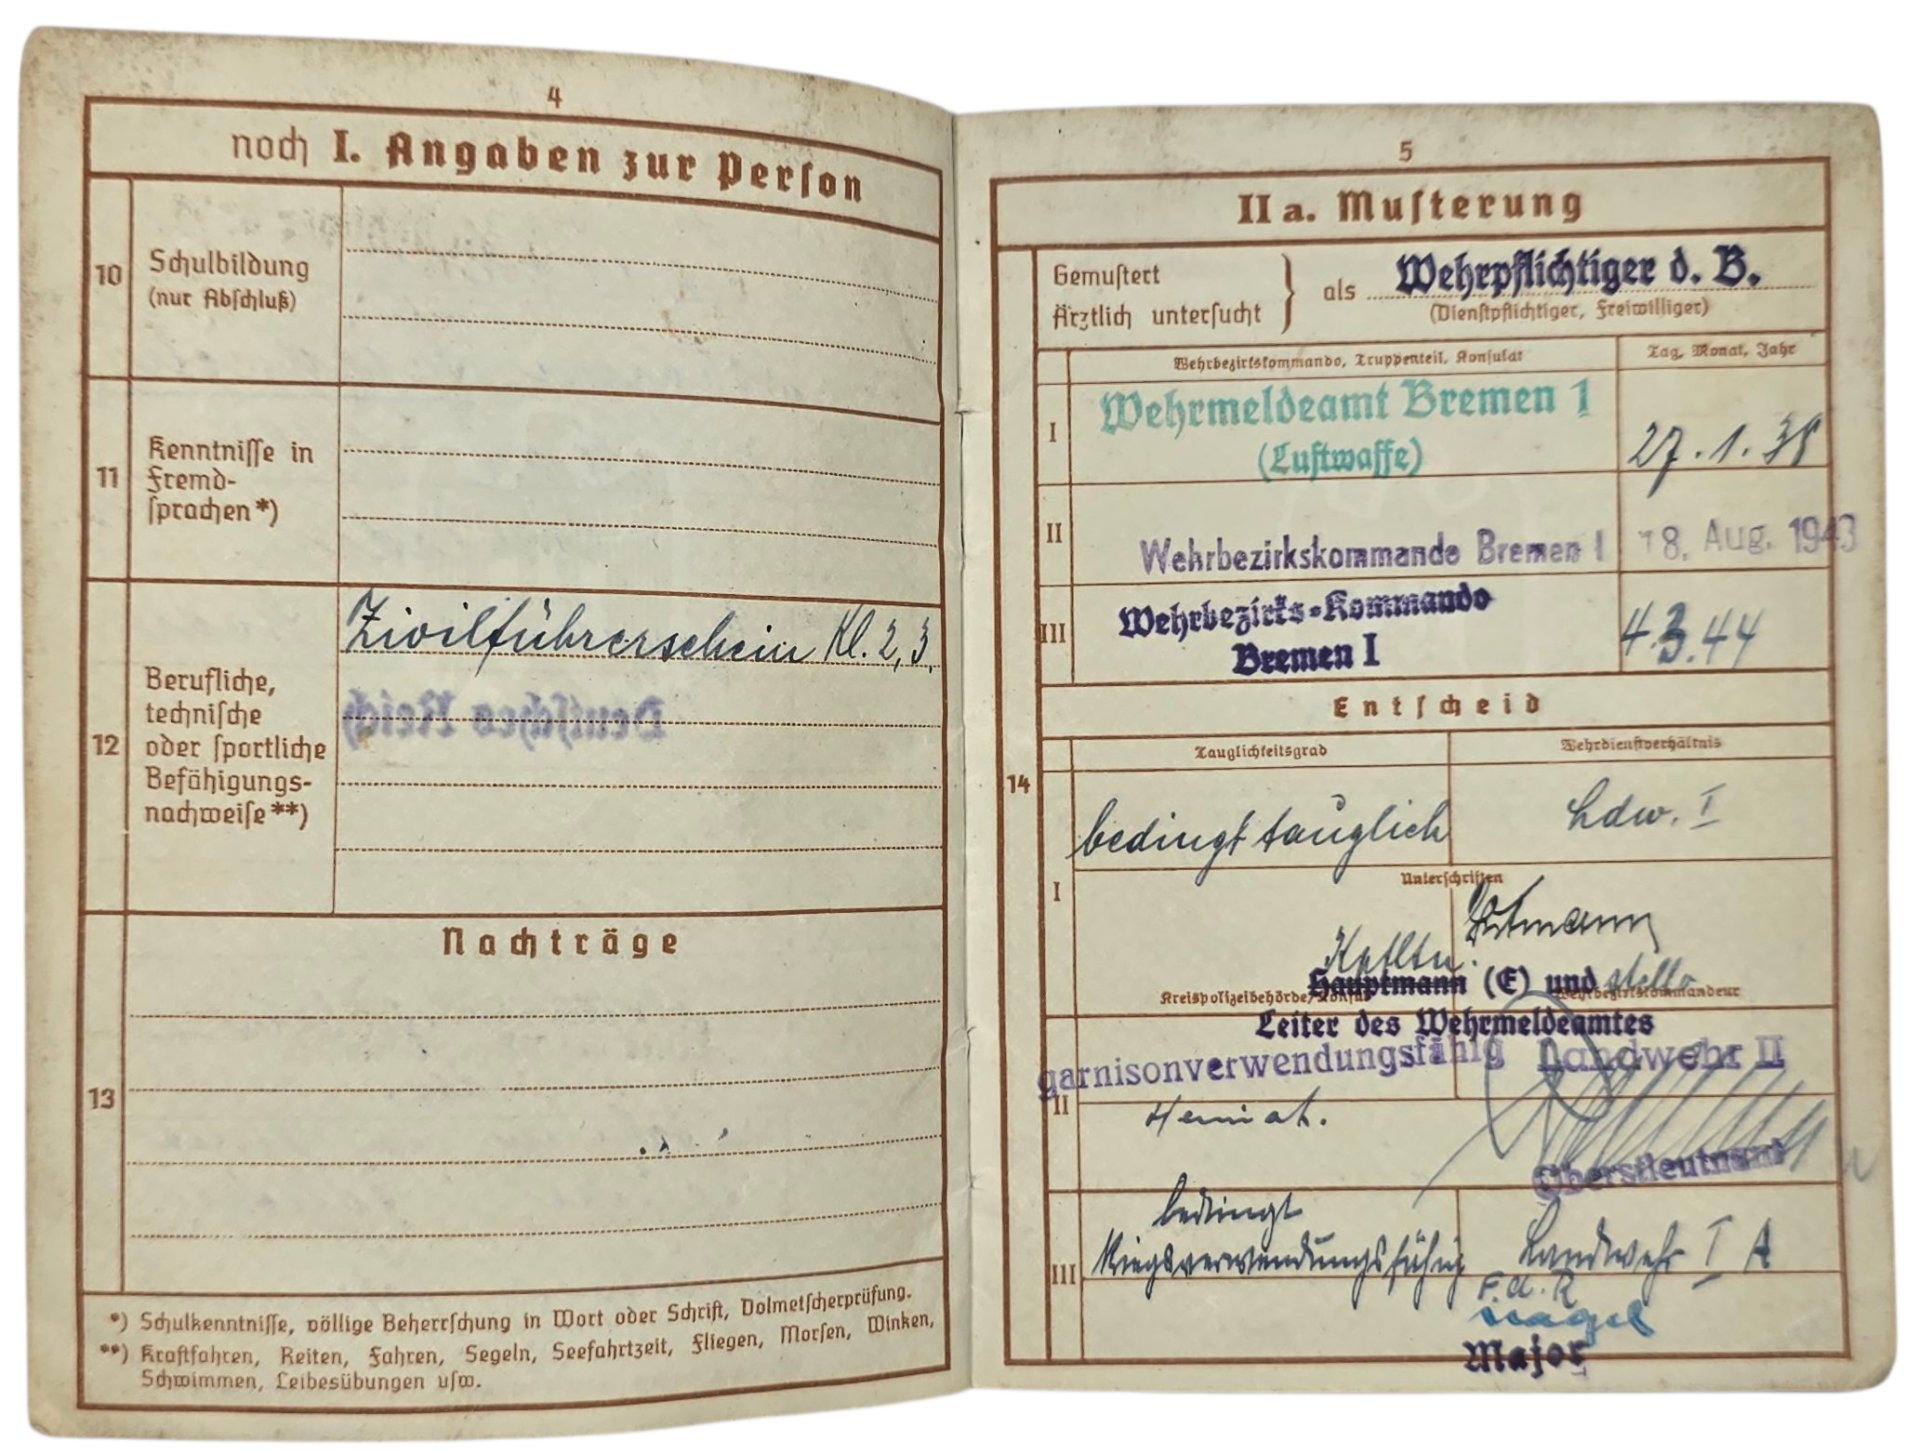 4
noch I. Angaben zur Person
10
Schulbildung
(nur Abschluß)
11
Kenntnisse in
Fremd-
sprachen *)
12
Berufliche,
technische
oder sportliche
Befähigungs-
nachweise **)
Zivilführerschein Kl. 2, 3.
Deutsches Reich
Nachträge
13
*) Schulkenntnisse, völlige Beherrschung in Wort oder Schrift, Dolmetscherprüfung.
**) Kraftfahren, Reiten, Fahren, Segeln, Seefahrtzeit, Fliegen, Morsen, Winken,
Schwimmen, Leibesübungen usw.
5
IIa. Musterung
Gemustert
Ärztlich untersucht
} als Wehrpflichtiger d. B.
(Dienstpflichtiger, Freiwilliger)
Wehrbezirkskommando, Truppenteil, Konsulat
Tag, Monat, Jahr
I
Wehrmeldeamt Bremen 1
(Luftwaffe)
27. 1. 38
II
Wehrbezirkskommando Bremen I
18. Aug. 1943
III
Wehrbezirks-Kommando
Bremen I
4. 3. 44
Entscheid
14
Tauglichkeitsgrad
Wehrdienstverhältnis
I
bedingt tauglich
Ldw. I
Unterschriften
Kptltn.
Hauptmann (E) und
Kreispolizeibehörde/Konsul
Wehrbezirkskommandeur
Leiter des Wehrmeldeamtes
II
garnisonverwendungsfähig
Landwehr II
Heimat.
Oberstleutnant
III
bedingt
Kriegsverwendungsfähig
Landwehr I A
F. d. R
Nagel
Major